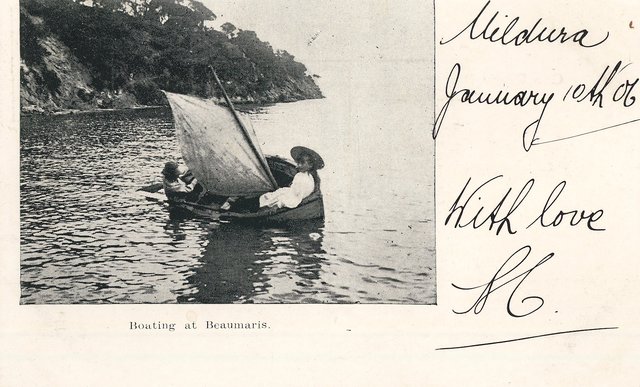 Mildura
January 10th 06
With love
Boating at Beaumaris.